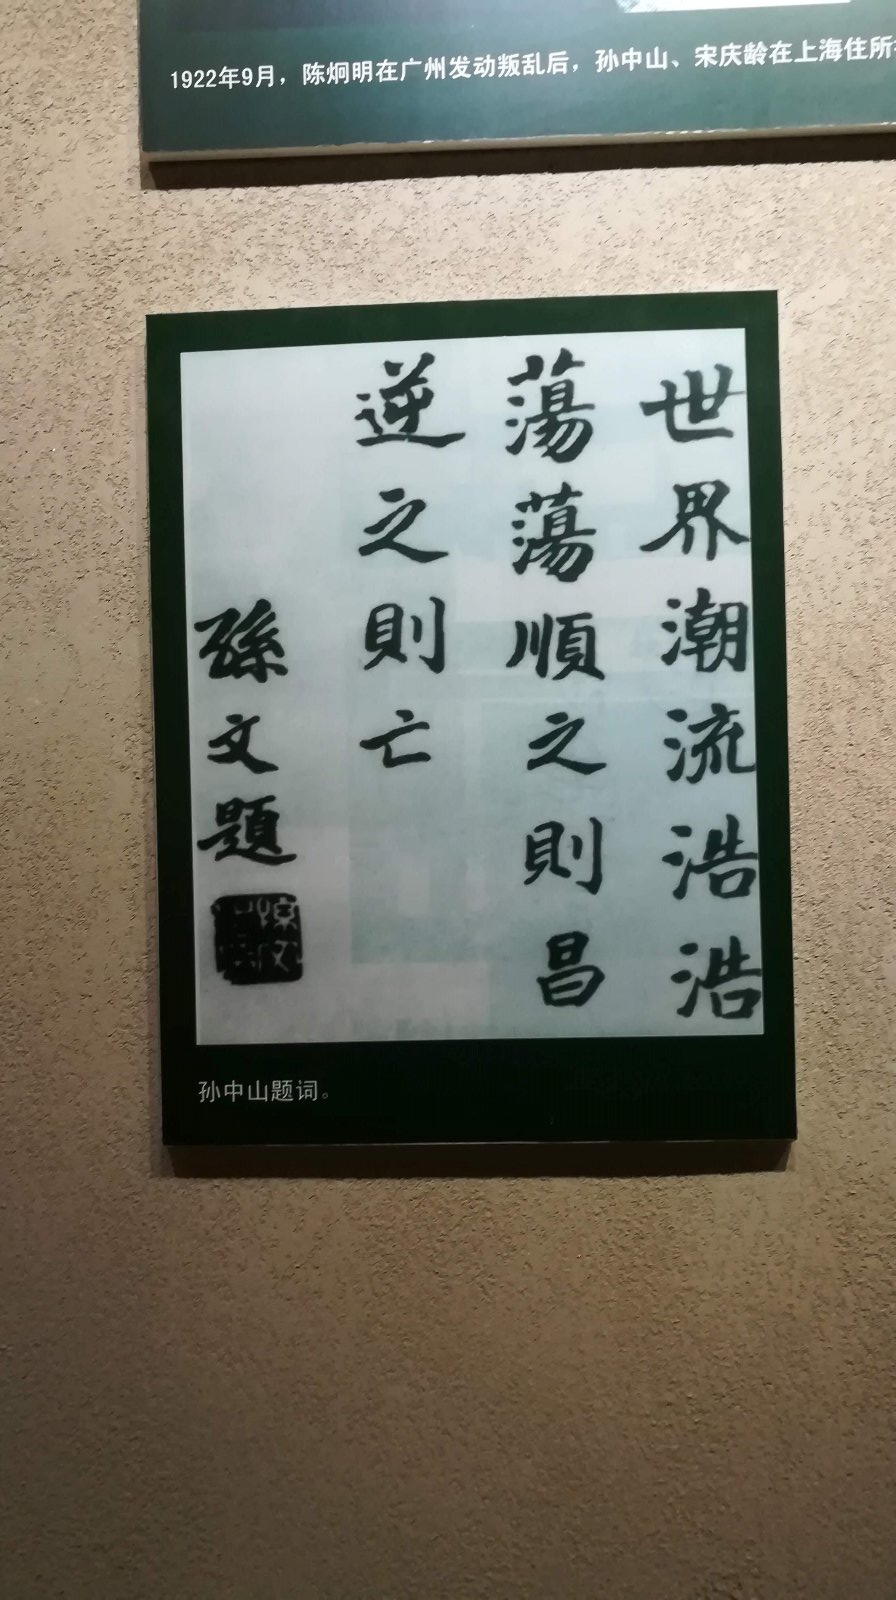 1922年9月，陈炯明在广州发动叛乱后，孙中山、宋庆龄在上海住所
世界潮流浩浩
蕩蕩順之則昌
逆之則亡
孫文題
孫文
孙中山题词。